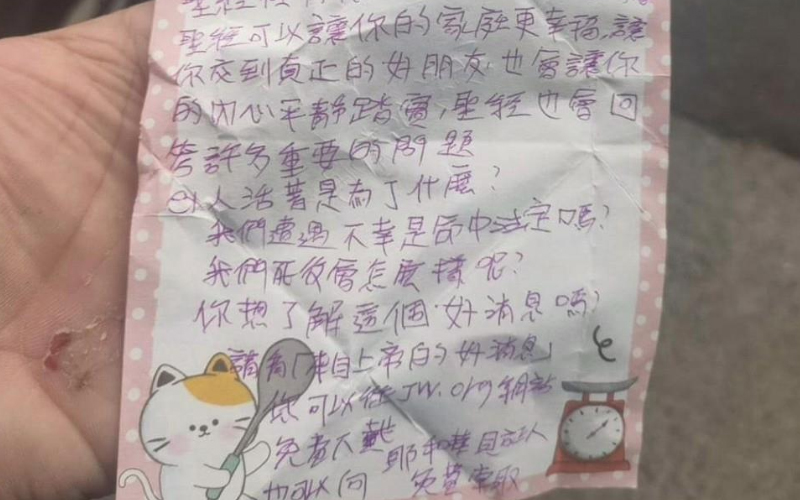 聖經可以讓你的家庭更幸福,讓
你交到真正的好朋友也會讓你
的內心平靜踏實,聖經也會回
答許多重要的問題
人活著是為了什麼?
我們遭遇不幸是命中注定嗎?
我們死後會怎麼樣呢?
你想了解這個好消息嗎?
請看「來自上帝的好消息」
你可以往JW.org網站
免費下載 耶和華見證人
也可以向 免費索取